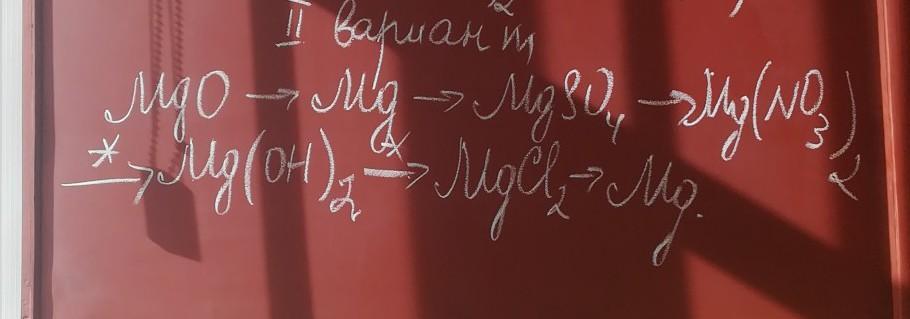 II вариант
MgO → Mg → MgSO₄ → Mg(NO₃)₂
*→ Mg(OH)₂ *→ MgCl₂ → Mg.